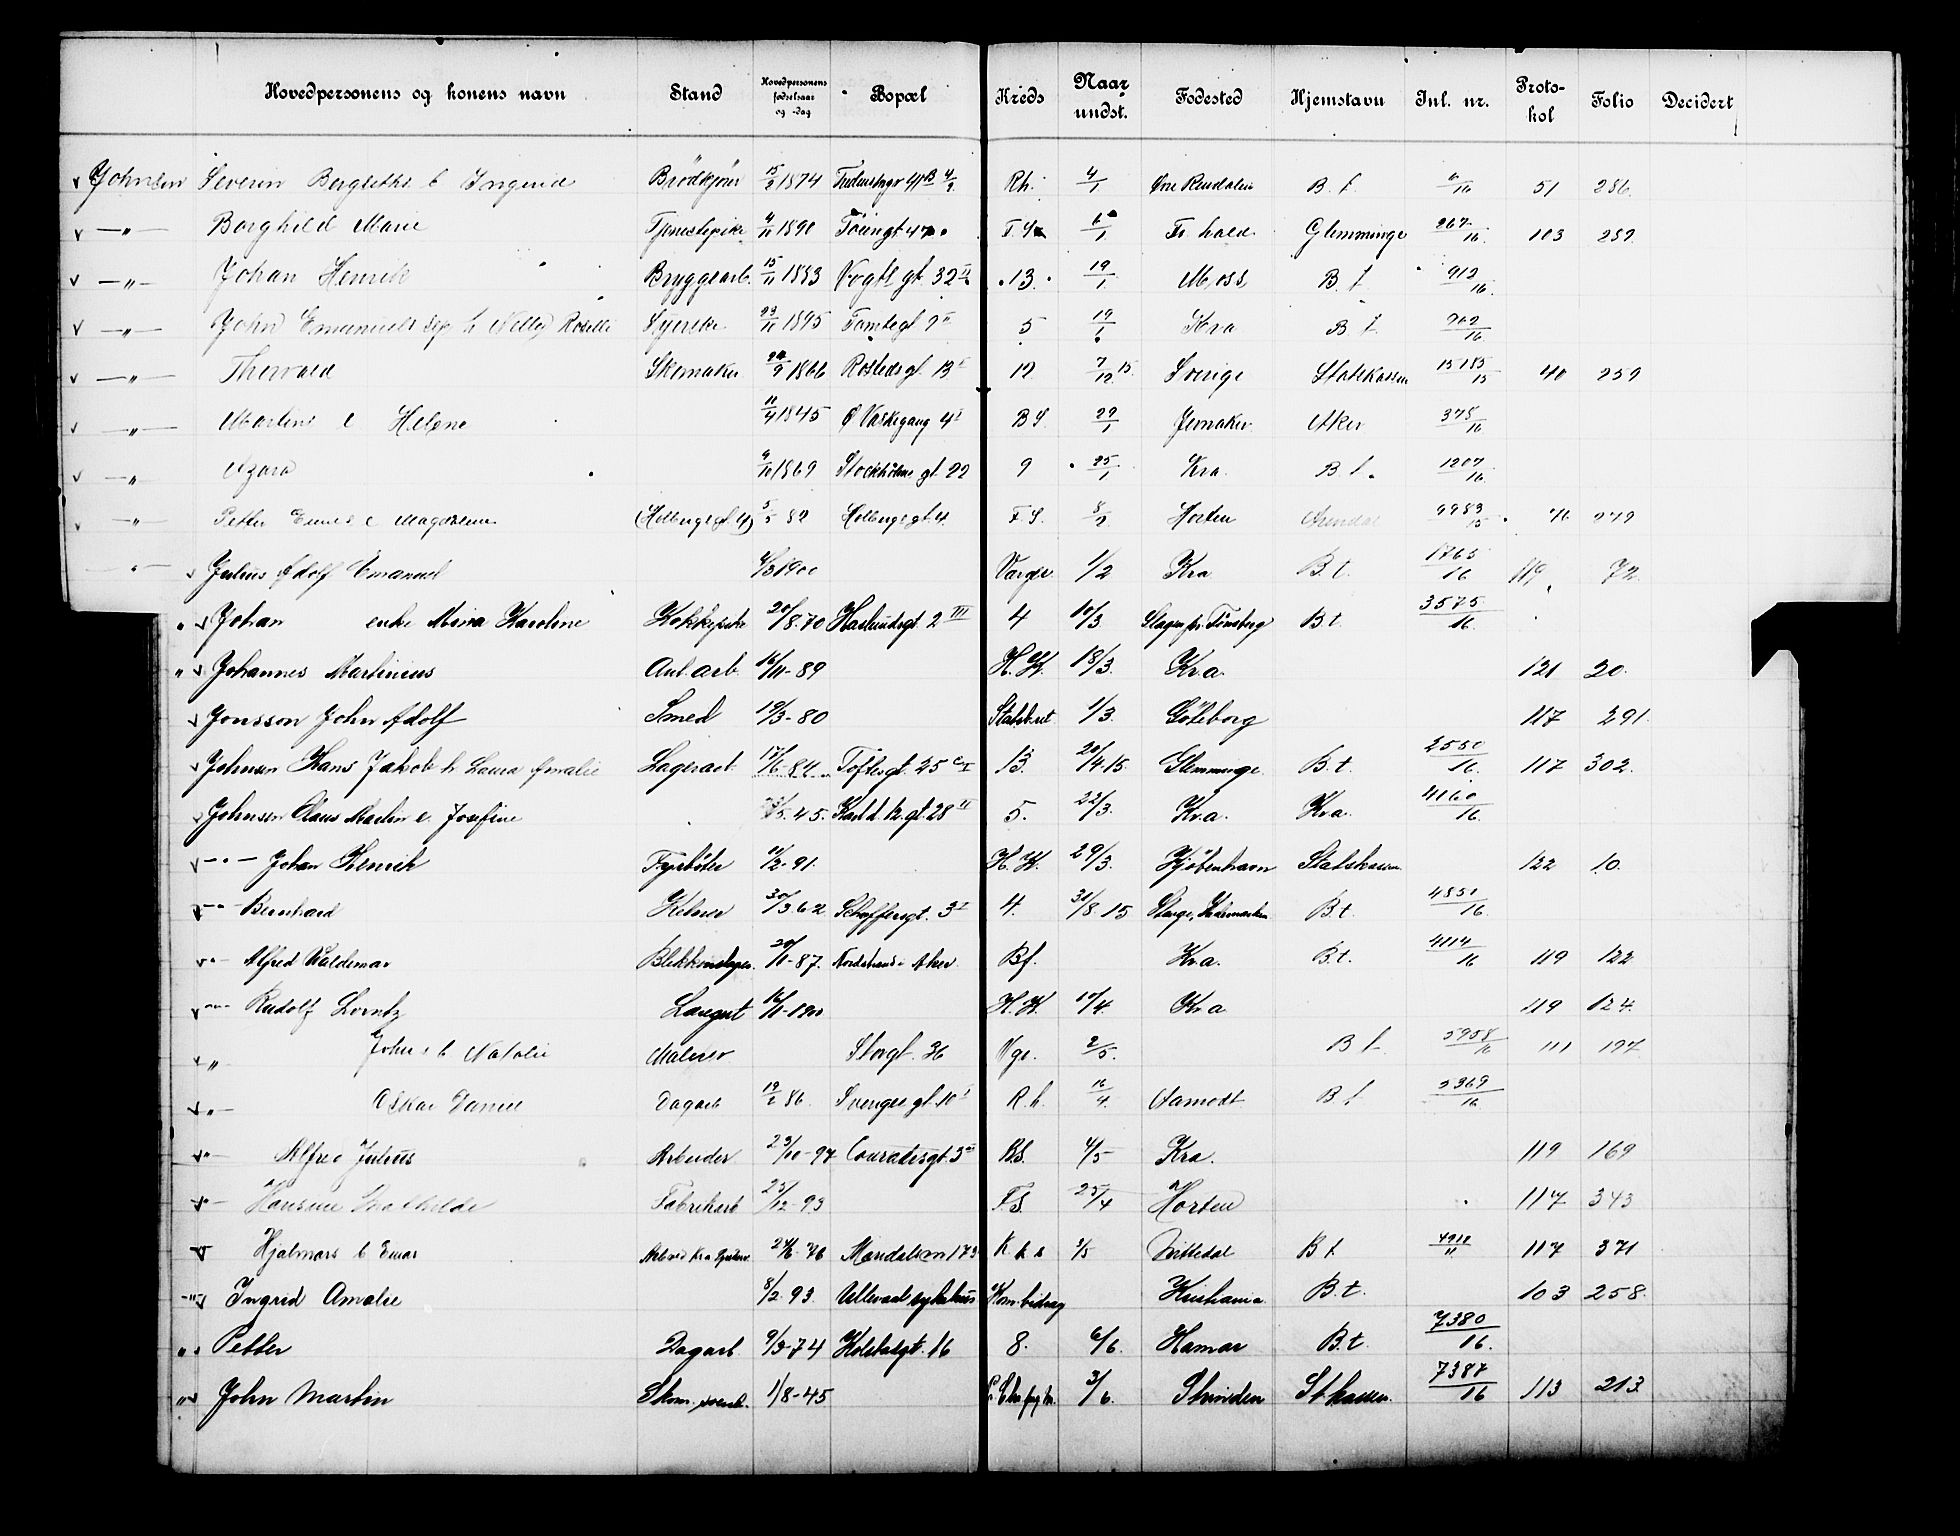 Hovedpersonens og konens navn Stand Hovedpersonens fødselsaar og -dag Bopæl Kreds Naar undst. Fødested Hjemstavn Inl. nr. Protokol Folio Decidert
Johnsen Severin Bergsethr. Ingerid Brödkjörer 15/2 1874 Rh. 4/1 Øvre Rendalen B. t. 51 286
—„— Borghild Marie Tjenestepike 4/11 1890 Töiengt 47 F.S. 6/1 Fr.hald Glemminge 267/16 103 289
—„— Johan Henrik Bryggearb. 15/11 1883 Vogts gt 32 II 13. 19/1 Moss B. t 912/16
—„— John Emanuels Nelly Roselli Syerske 23/11 1895 Tomtegt 9 II 5 19/1 Kra B t 962/16
—„— Thorvald Skomaker 24/9 1866 Rostedsgt. 13 I 12 7/12 15 Sverige Statskassen 15185/15 40 259
—„— Martins e Helene 11/9 1845 Ø Vaskegang 4 I BS 29/1 Jevnaker Aker 375/16
—„— Azora 4/10 1869 Stockholms gt 22 9 25/1 Kra B t. 1207/16
—„— Petter e Magdalene (Holbergsgt. 4) 5/5 82 Holbergsgt. 4 F.S. 8/2 Horten Arendal 9983/15 76 279
—„— Julius Adolf Emanuel 4/3 1900 Varger 1/2 Kra B.t. 1765/16 119 72
„ Johan enke Mina Karoline Kokkepike 20/8. 70 Haslundsgt. 2 III 4 10/3 Slagen pr. Tönsberg B t 3575/16.
„ Johannes Martinius Anl. arb. 16/11-89 H. H. 18/3. Kr.a. 121 20.
Jonsson John Adolf Smed 19/3-80 Statskret 1/3. Göteborg 117 291
Johnsen Hans Jakob h Laura Amalie Lagerarb. 17/6-84 Toftesgt. 25 c I 13. 20/4 15. Glemminge B. t. 2550/16. 117 302.
Johnsen Claus Martin e. Josefine 5. 45. Karl d. 12. gt. 28 II 5. 22/3. Kr.a. Kr.a. 4160/16.
—„— Johan Henrik Fyrböter 11/2-91. H. H. 29/3. Kjöbenhavn Statskassen 122 10.
„ Bernhard Kelner 30/3 62 Schafferigt. 3 I 4. 31/8 15 Stange, Hedemarken B. t. 4851/16.
„ Alfred Waldemar Blikkenslager. 20/11-87. Nordstrand i Aker B.f. Kr.a. B.t. 4114/16 119 122
„ Rudolf Lorntz Laugut 16/11-1900 H. H. 10/4. Kr.a 119 124.
„ Johns b Natalie Maler Storgt. 36 Vge. 2/5. B t 5958/16 111 197
„ Oskar Daniel Dagarb 19/6 86. Sverigesgt. 10 I R.h. 16/4. Aamodt B t 5369/16
„ Alfred Julius Arbeider 23/10-97 Conradisgt. 3 III B.S. 4/5 Kra. 119 169
„ Hansine Mathilde Fabrikarb 25/12-93 F.S 25/4 Horten 117 343
Hjalmars b Einar 24/6-76 Maridalsvn 173 K. h. s 3/5 Nittedal B t. 4918/11 117 371
—„— Ingrid Amalie 8/2. 93. Ullevaal sykehus Kom.bidrag Kristiania B.t. 103 258.
„ Petter Dagarb. 9/3-74 Holstasgt. 16 8. 6/6. Hamar B.t. 7380/16.
„ John Martin Skom. svend. 1/8-45 3/6. Strinden St.kassen. 7387/16 113 213